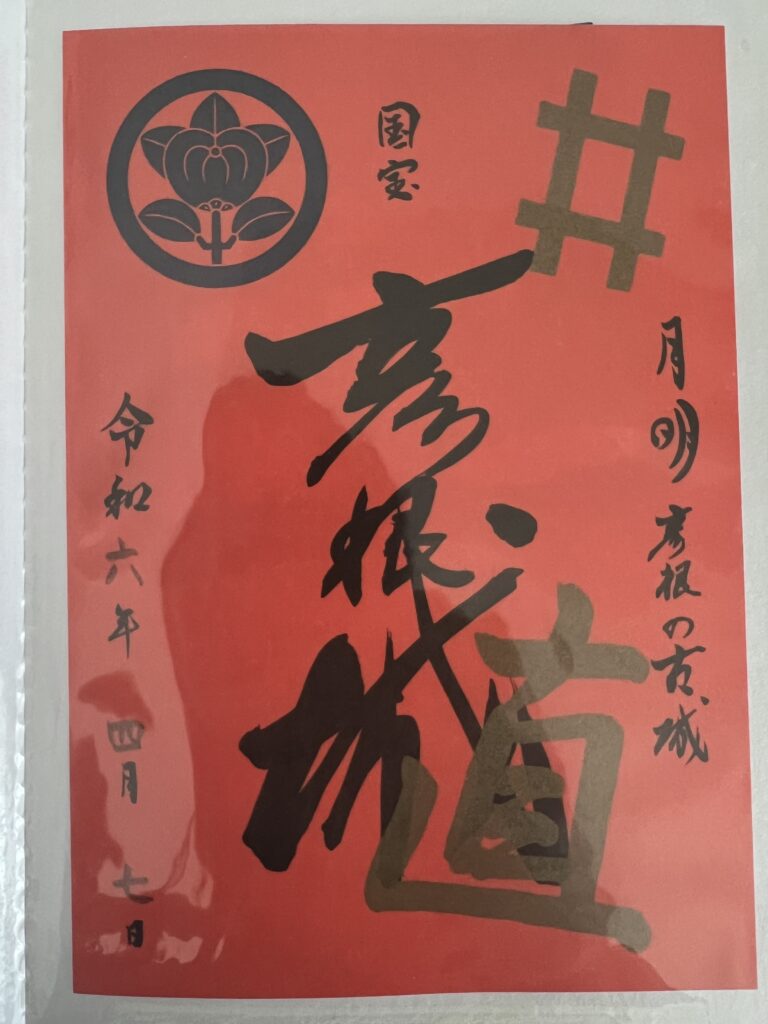 井
月明 彦根の古城
国宝
彦根城
直
令和六年 四月 七日